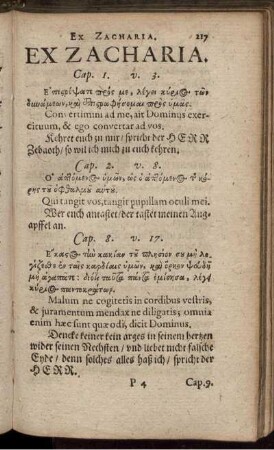 Ex Zacharia. 217
EX ZACHARIA.
Cap. 1. v. 3.
Ἐπιστρέψατε πρὸς με, λέγει κύρι@ τῶν
δυνάμεων, καὶ ἐπιστραφήσομαι πρὸς ὑμᾶς.
Convertimini ad me, ait Dominus exer-
cituum, & ego convertar ad vos.
Kehret euch zu mir / spricht der HERR
Zebaoth / so wil ich mich zu euch kehren.
Cap. 2. v. 8.
Ὁ ἁπτόμεν@ ὑμῶν, ὡς ὁ ἁπτόμεν@ τ κό-
ρης τοῦ ὀφθαλμοῦ αὐτοῦ.
Qui tangit vos, tangit pupillam oculi mei.
Wer euch antastet / der tastet meinen Aug-
apffel an.
Cap. 8. v. 17.
Ἕκας@ τὴν κακίαν τοῦ πλησίον ου μὴ λο-
γίζεσθε ἐν ταῖς καρδίαις ὑμῶν, καὶ ὅρκον ψευδῆ
μὴ ἀγαπᾶτε: διότι ταῦτα πάντα ἐμίσησα, λέγει
κύρι@ παντοκράτωρ.
Malum ne cogitetis in cordibus vestris,
& juramentum mendax ne diligatis; omnia
enim hæc sunt quæ odi, dicit Dominus.
Dencke keiner kein arges in seinem hertzen
wider seinen Nechsten / und liebet nicht falsche
Eyde / denn solches alles haß ich / spricht der
HERR.
P 4 Cap. 9.